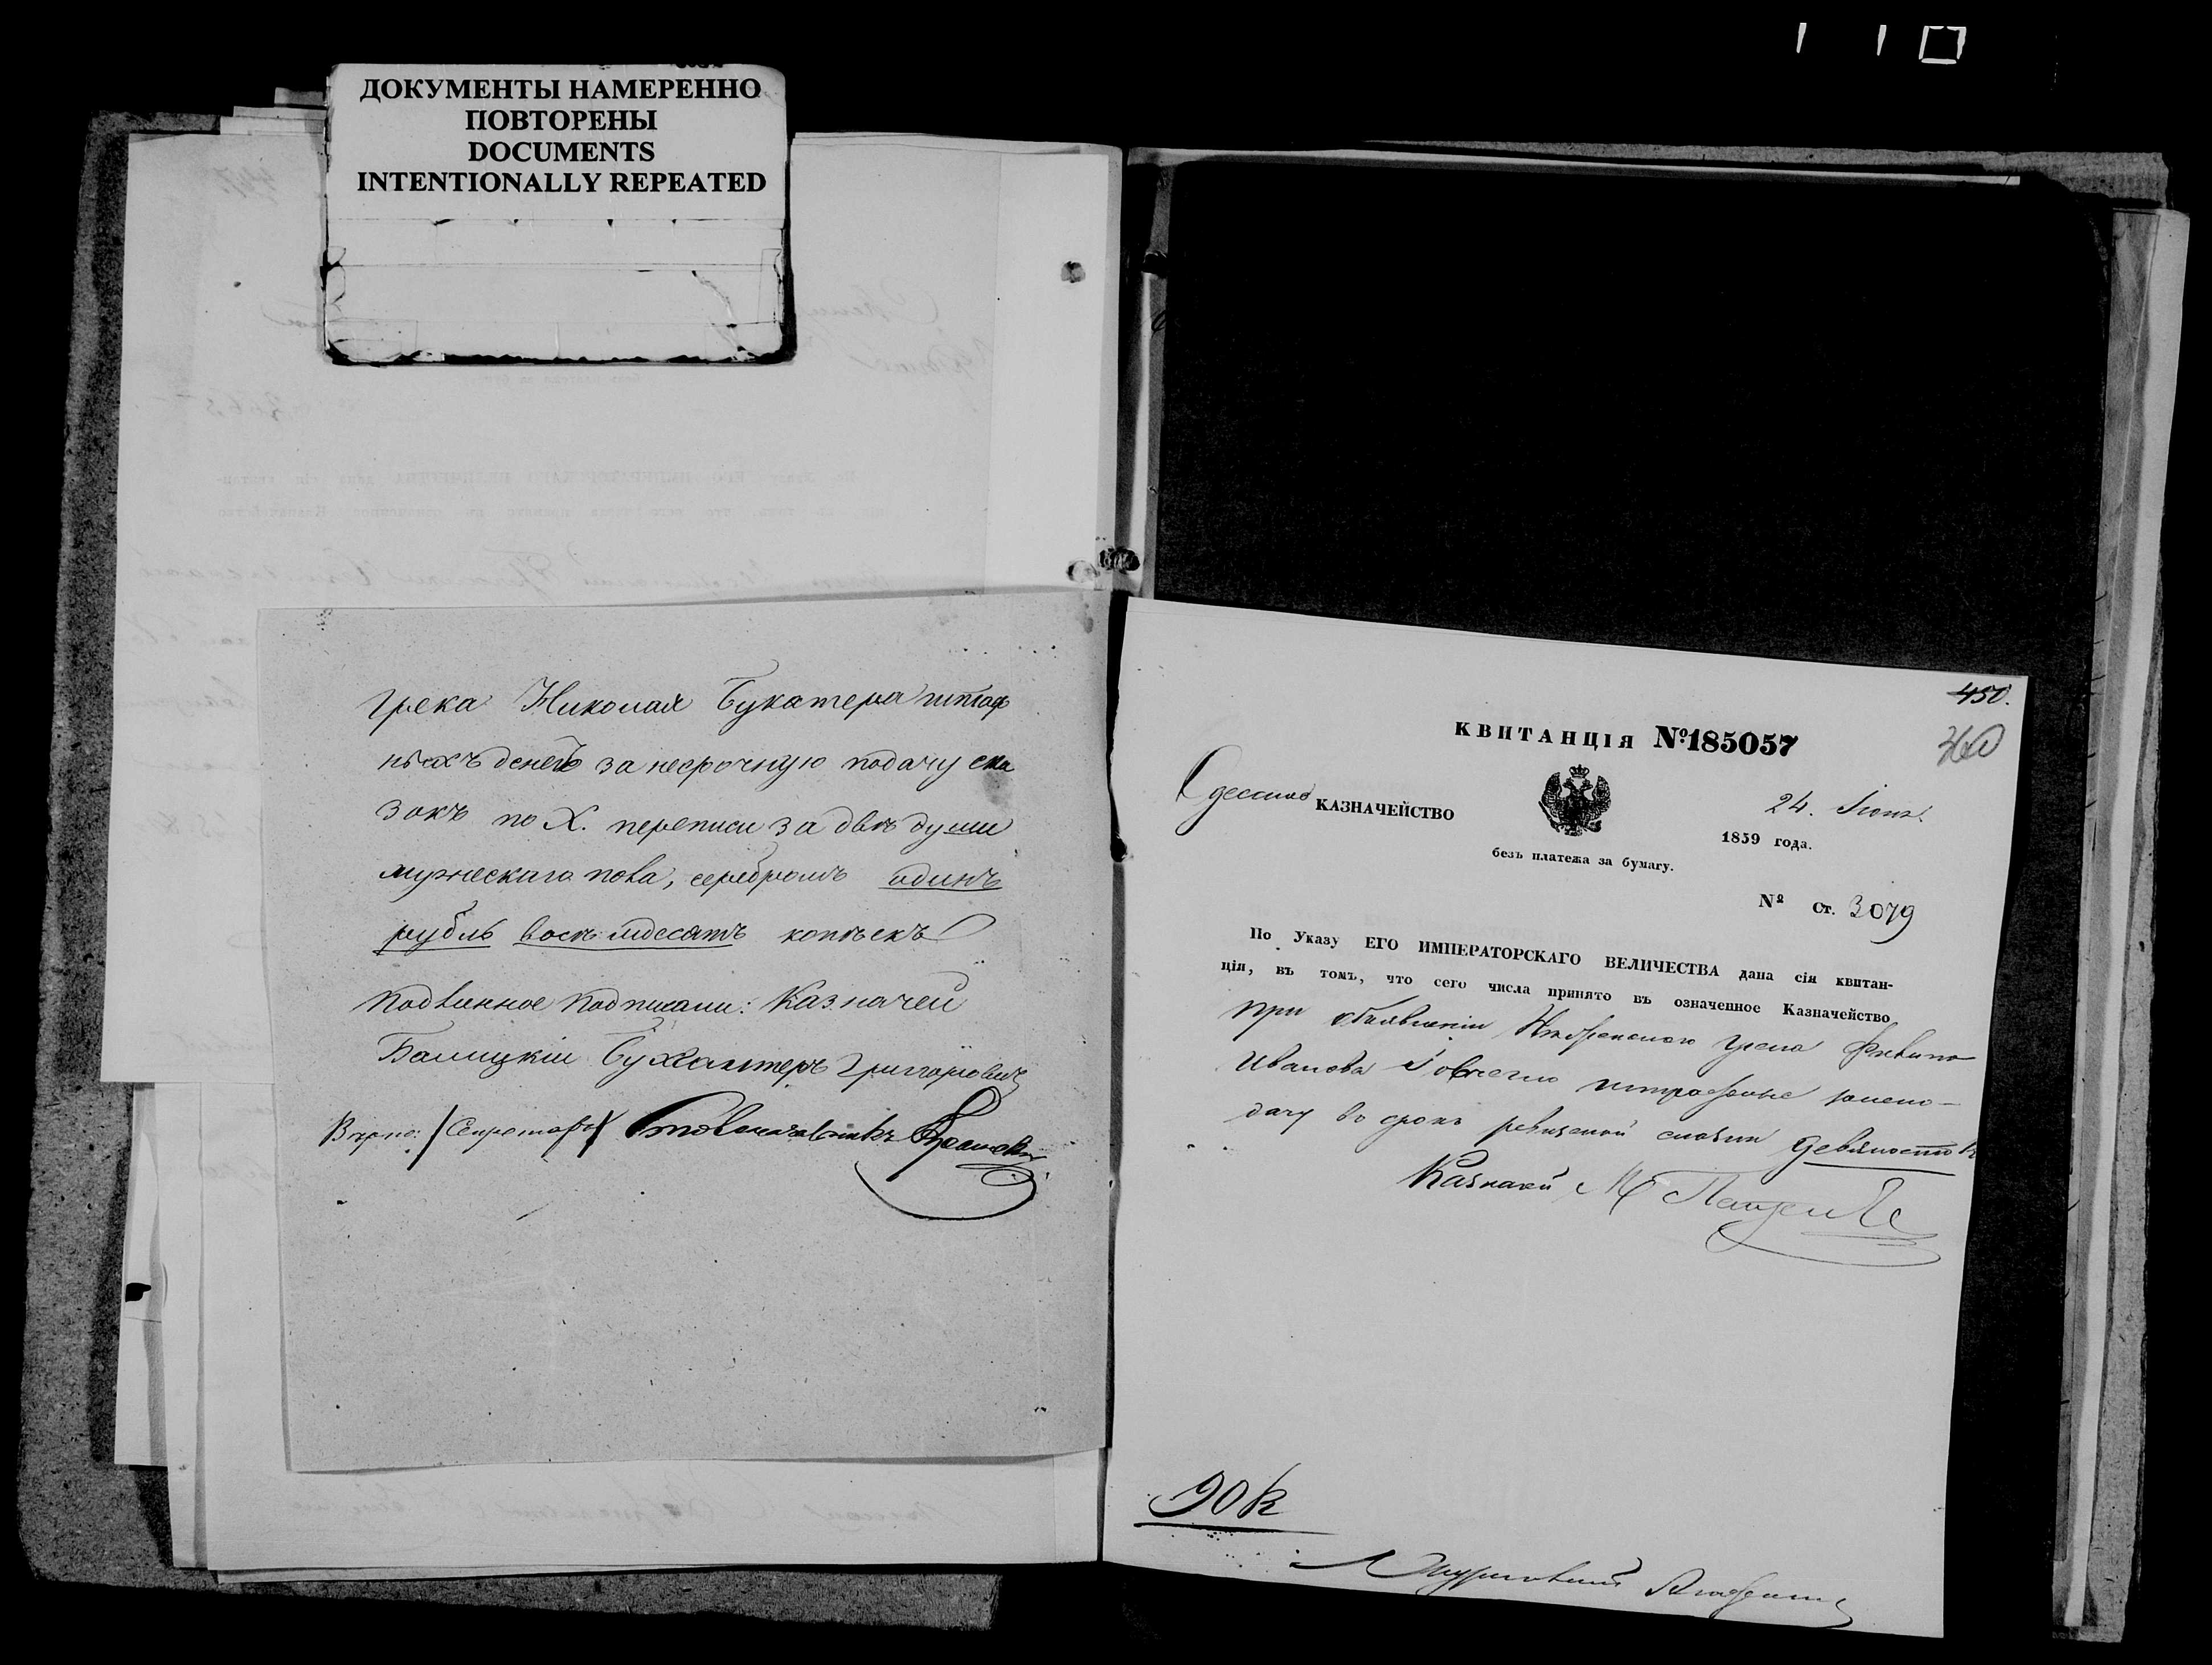 ДОКУМЕНТЫ НАМЕРЕННО
ПОВТОРЕНЫ
DOCUMENTS
INTENTIONALLY REPEATED
грека Николая Букатера штраф
ныхъ денегъ за несрочную подачу ска
зокъ по X. переписи за двѣ души
мужескаго пола, серебромъ одинъ
рубль восемьдесятъ копѣекъ
Подлинное подписали: Казначей
Балицкій Бухгалтеръ Григоровичъ
Вѣрно: / Секретарь /
450.
КВИТАНЦІЯ №185057
Одесское КАЗНАЧЕЙСТВО
24. Іюня
1859 года.
безъ платежа за бумагу.
№ Ст. 3079
По Указу ЕГО ИМПЕРАТОРСКАГО ВЕЛИЧЕСТВА дана сія квитан-
ція, въ томъ, что сего числа принято въ означенное Казначейство
при объявленіи грека
Иванова штрафные
дачу въ срокъ ревизской сказки девяносто к
Казначей М
90 к